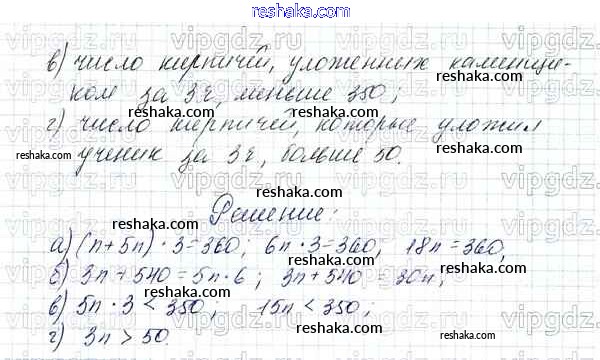 reshaka.com
в) число кирпичей, уложенных каменщи-
ком за 3 ч, меньше 350;
г) число кирпичей, которые уложил
ученик за 3 ч, больше 50.
Решение:
а) (n+5n) · 3 = 360; 6n · 3 = 360; 18n = 360;
б) 3n + 540 = 5n · 6; 3n + 540 = 30n;
в) 5n · 3 < 350; 15n < 350;
г) 3n > 50.
reshaka.com